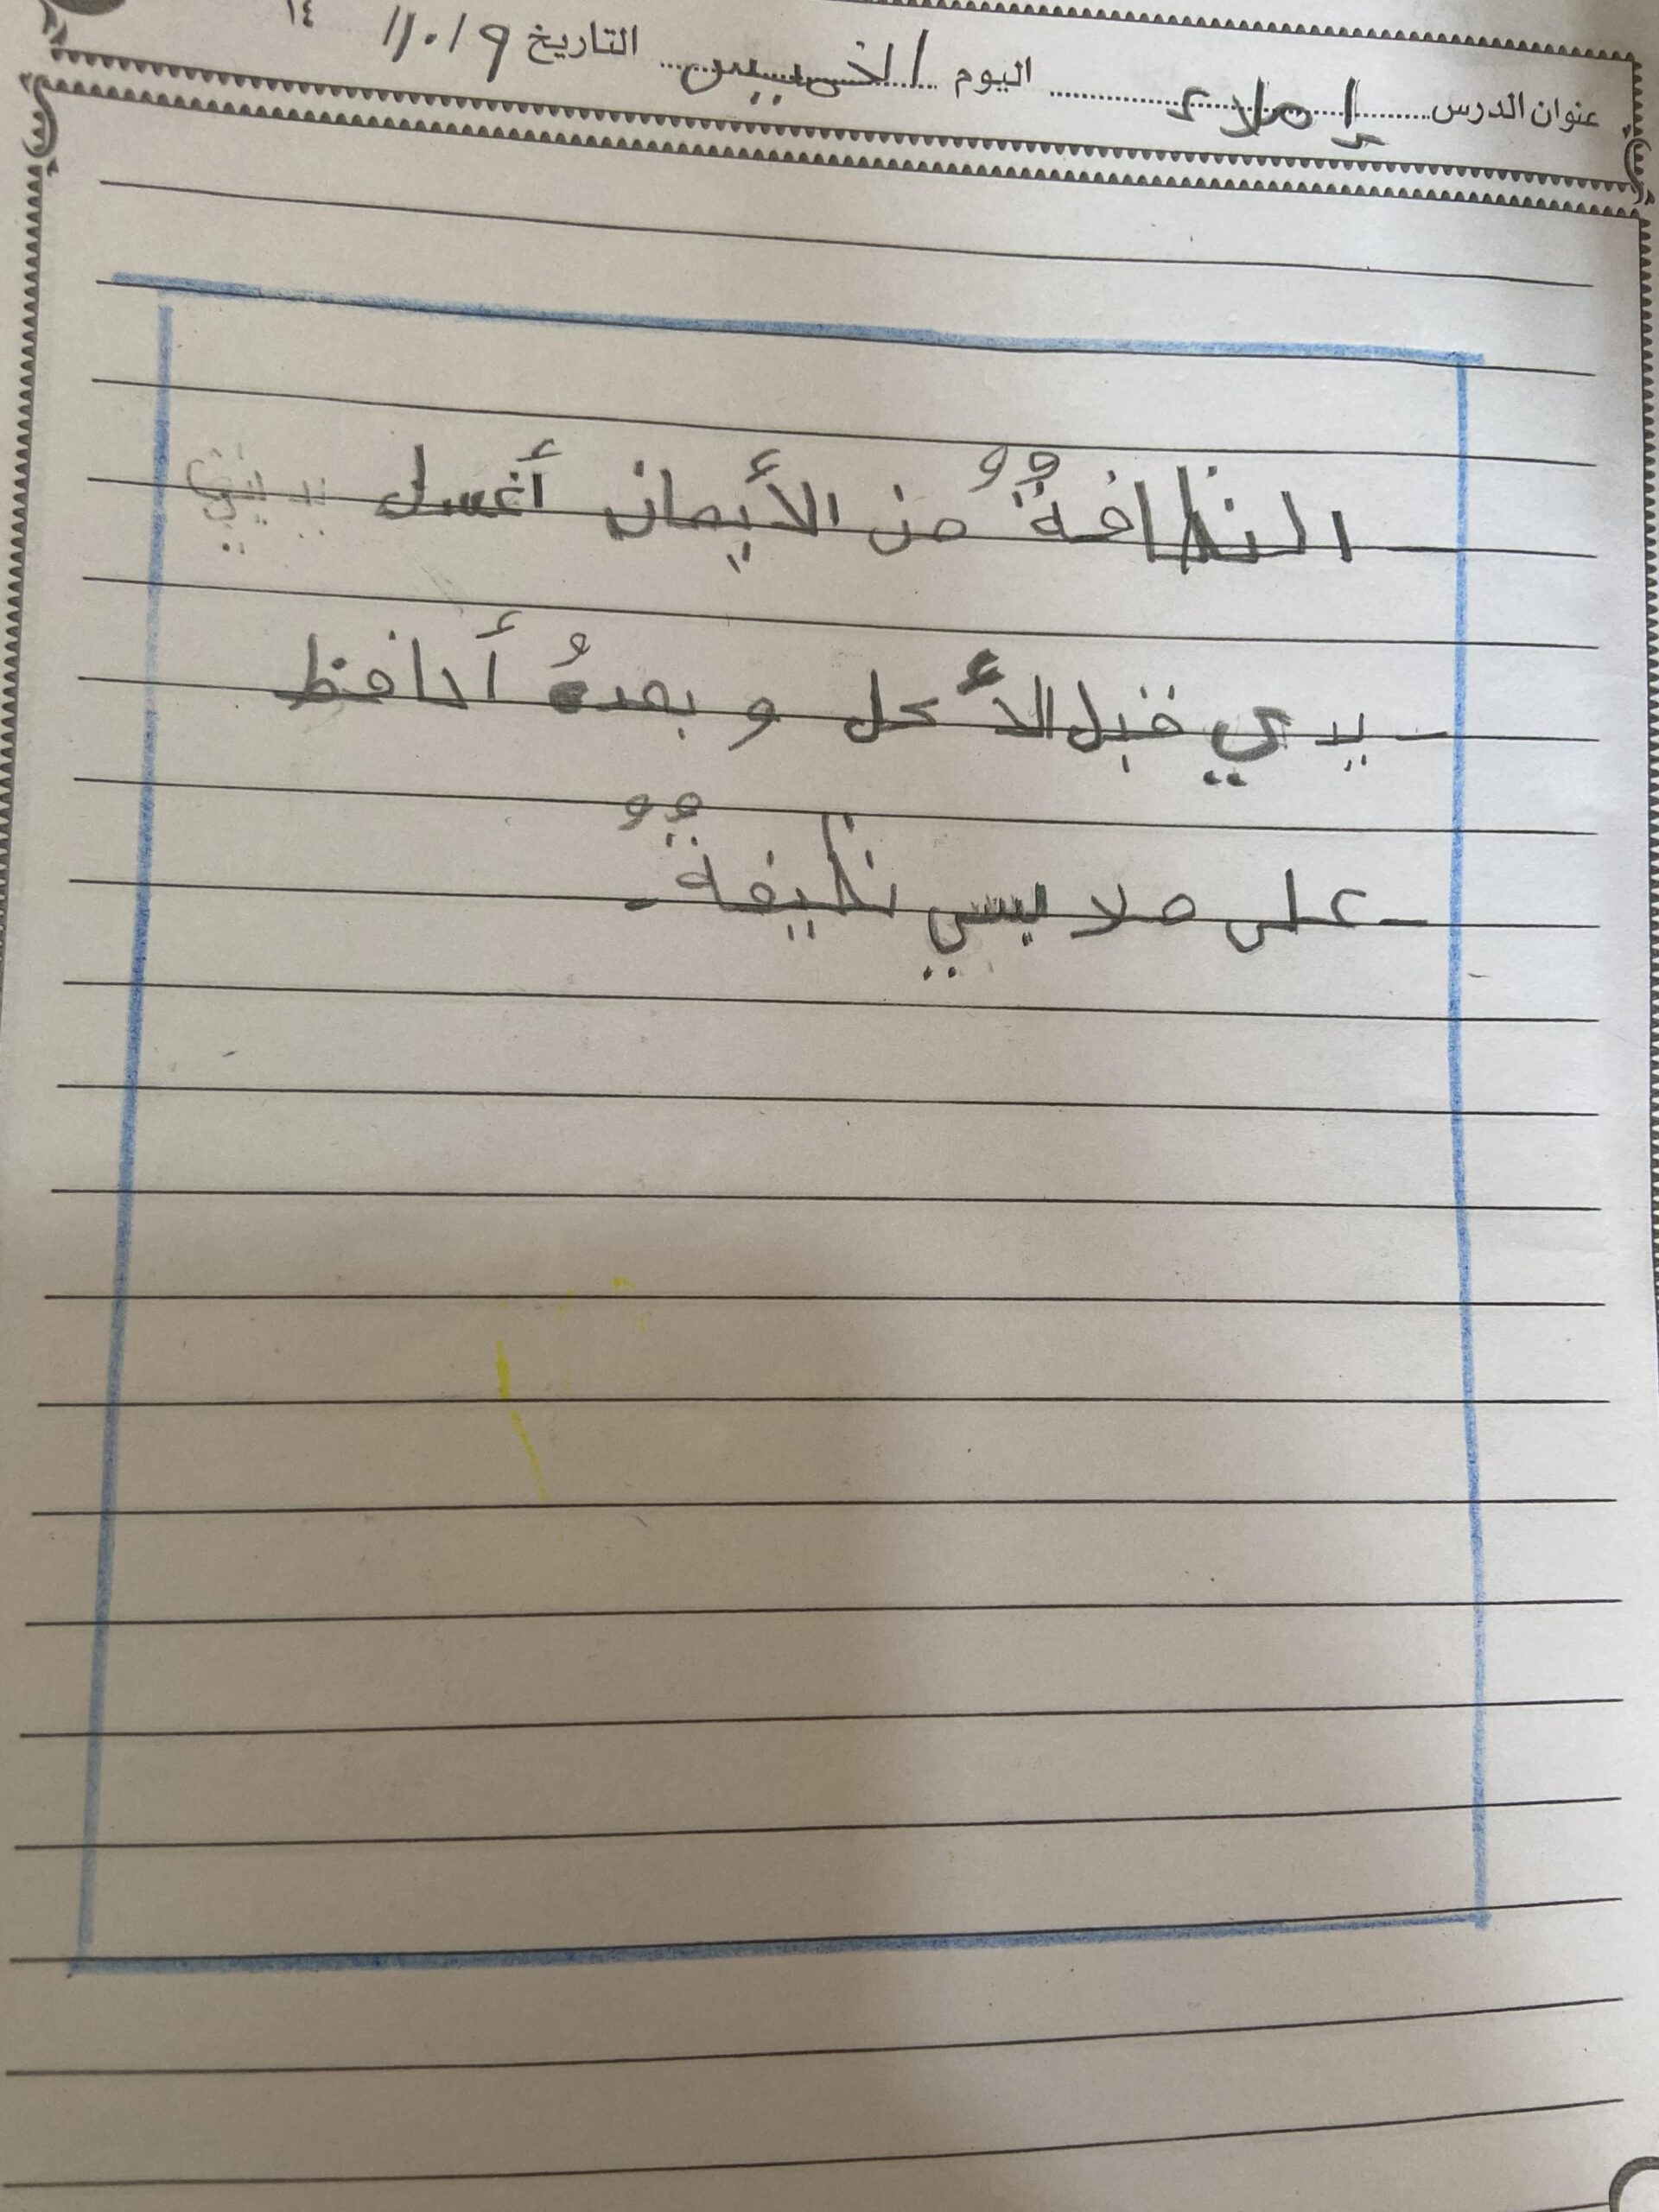 ١٤
عنوان الدرس إملاء اليوم الخميس التاريخ ١١.١٩
النظافةٌ من الأيمان أغسل
- يدي قبل الأكل و بعدهُ أحافظ
- على ملابسي نظيفةٌ -